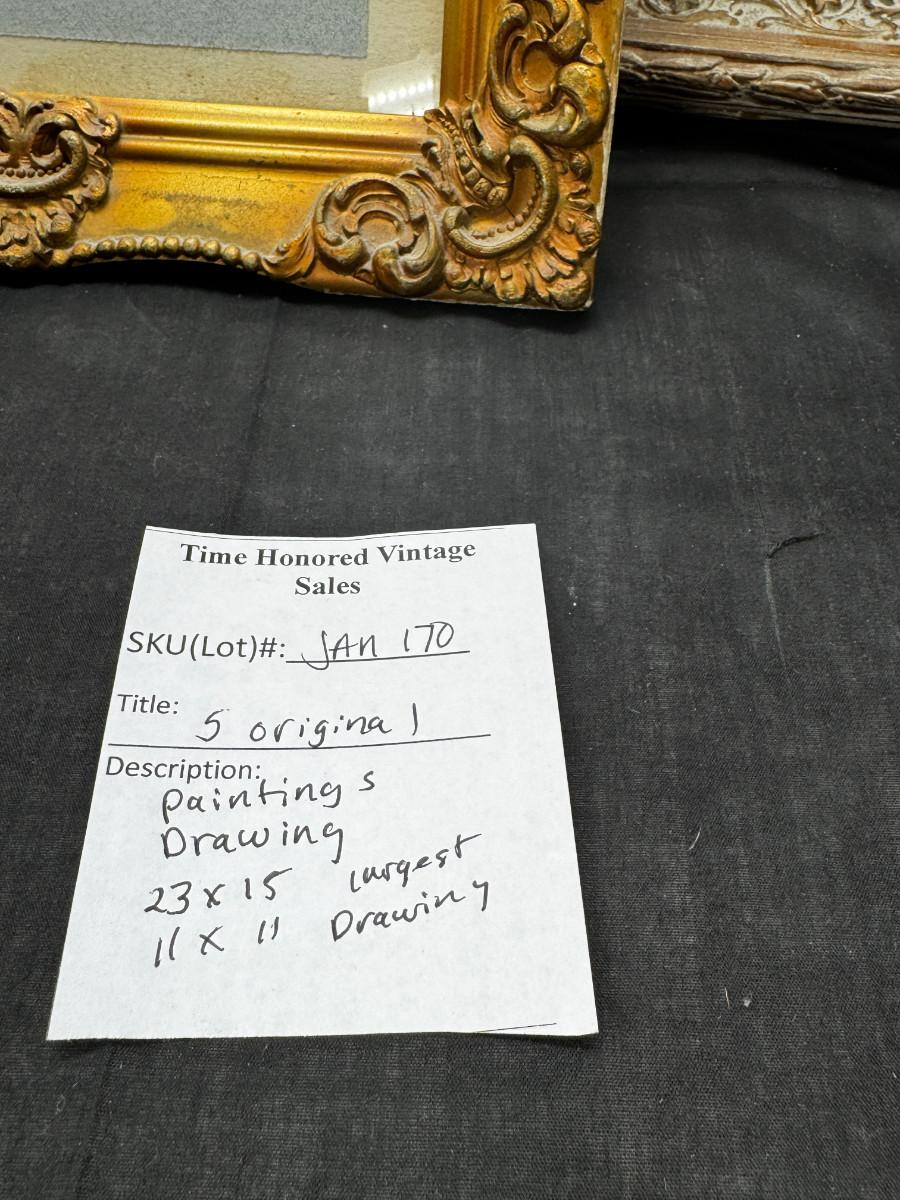 Time Honored Vintage
Sales
SKU(Lot)#: JAN 170
Title: 5 original
Description:
Paintings
Drawing
23 x 15 largest
11 x 11 Drawing